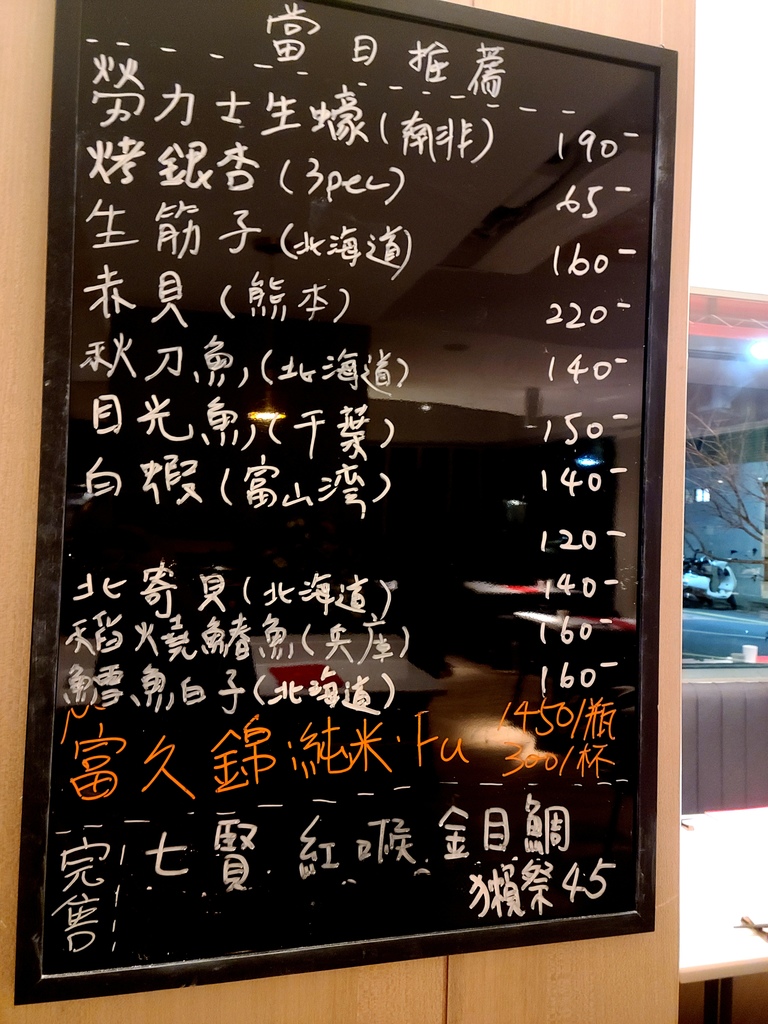 當日推薦
勞力士生蠔(南非) 190-
烤銀杏(3pcs) 65-
生筋子(北海道) 160-
赤貝(熊本) 220-
秋刀魚(北海道) 140-
目光魚(千葉) 150-
白蝦(富山湾) 140-
120-
北寄貝(北海道) 140-
稻燒鰆魚(兵庫) 160-
鱈魚白子(北海道) 160-
富久錦·純米·Fu 1450/瓶
300/杯
完售 七賢 紅喉 金目鯛
獺祭45